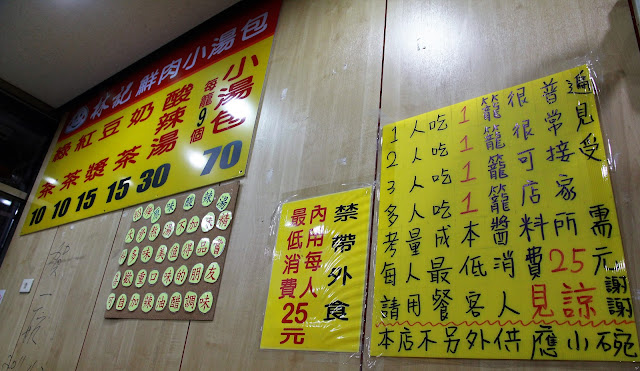 林記鮮肉小湯包
小湯包 每籠9個 70
酸辣湯 30
奶茶 15
豆漿 15
紅茶 10
綠茶 10
口味的朋友
自加味油醋調味
禁帶外食
內用每人
最低消費25元
1人吃1籠很普遍
2人吃1籠很常見
3人吃1籠可接受
多人吃1籠店家
考量成本醬料所需
每人最低消費25元
請用餐客人見諒謝謝
本店不另外供應小碗